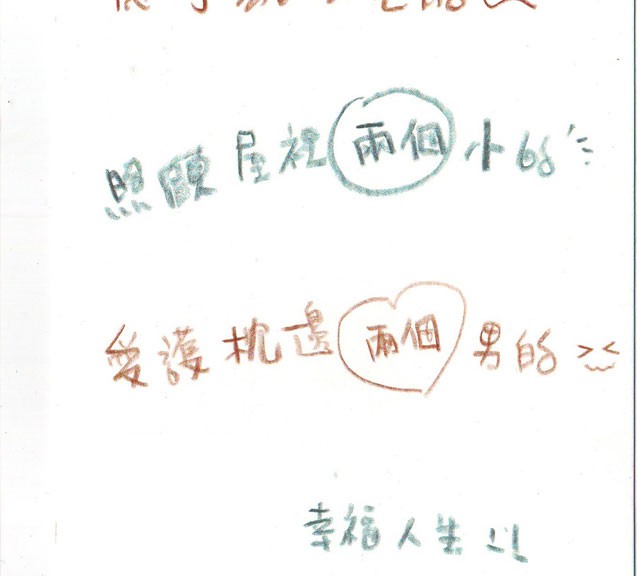 照顧屋裡兩個小的
愛護枕邊兩個男的 ><
幸福人生